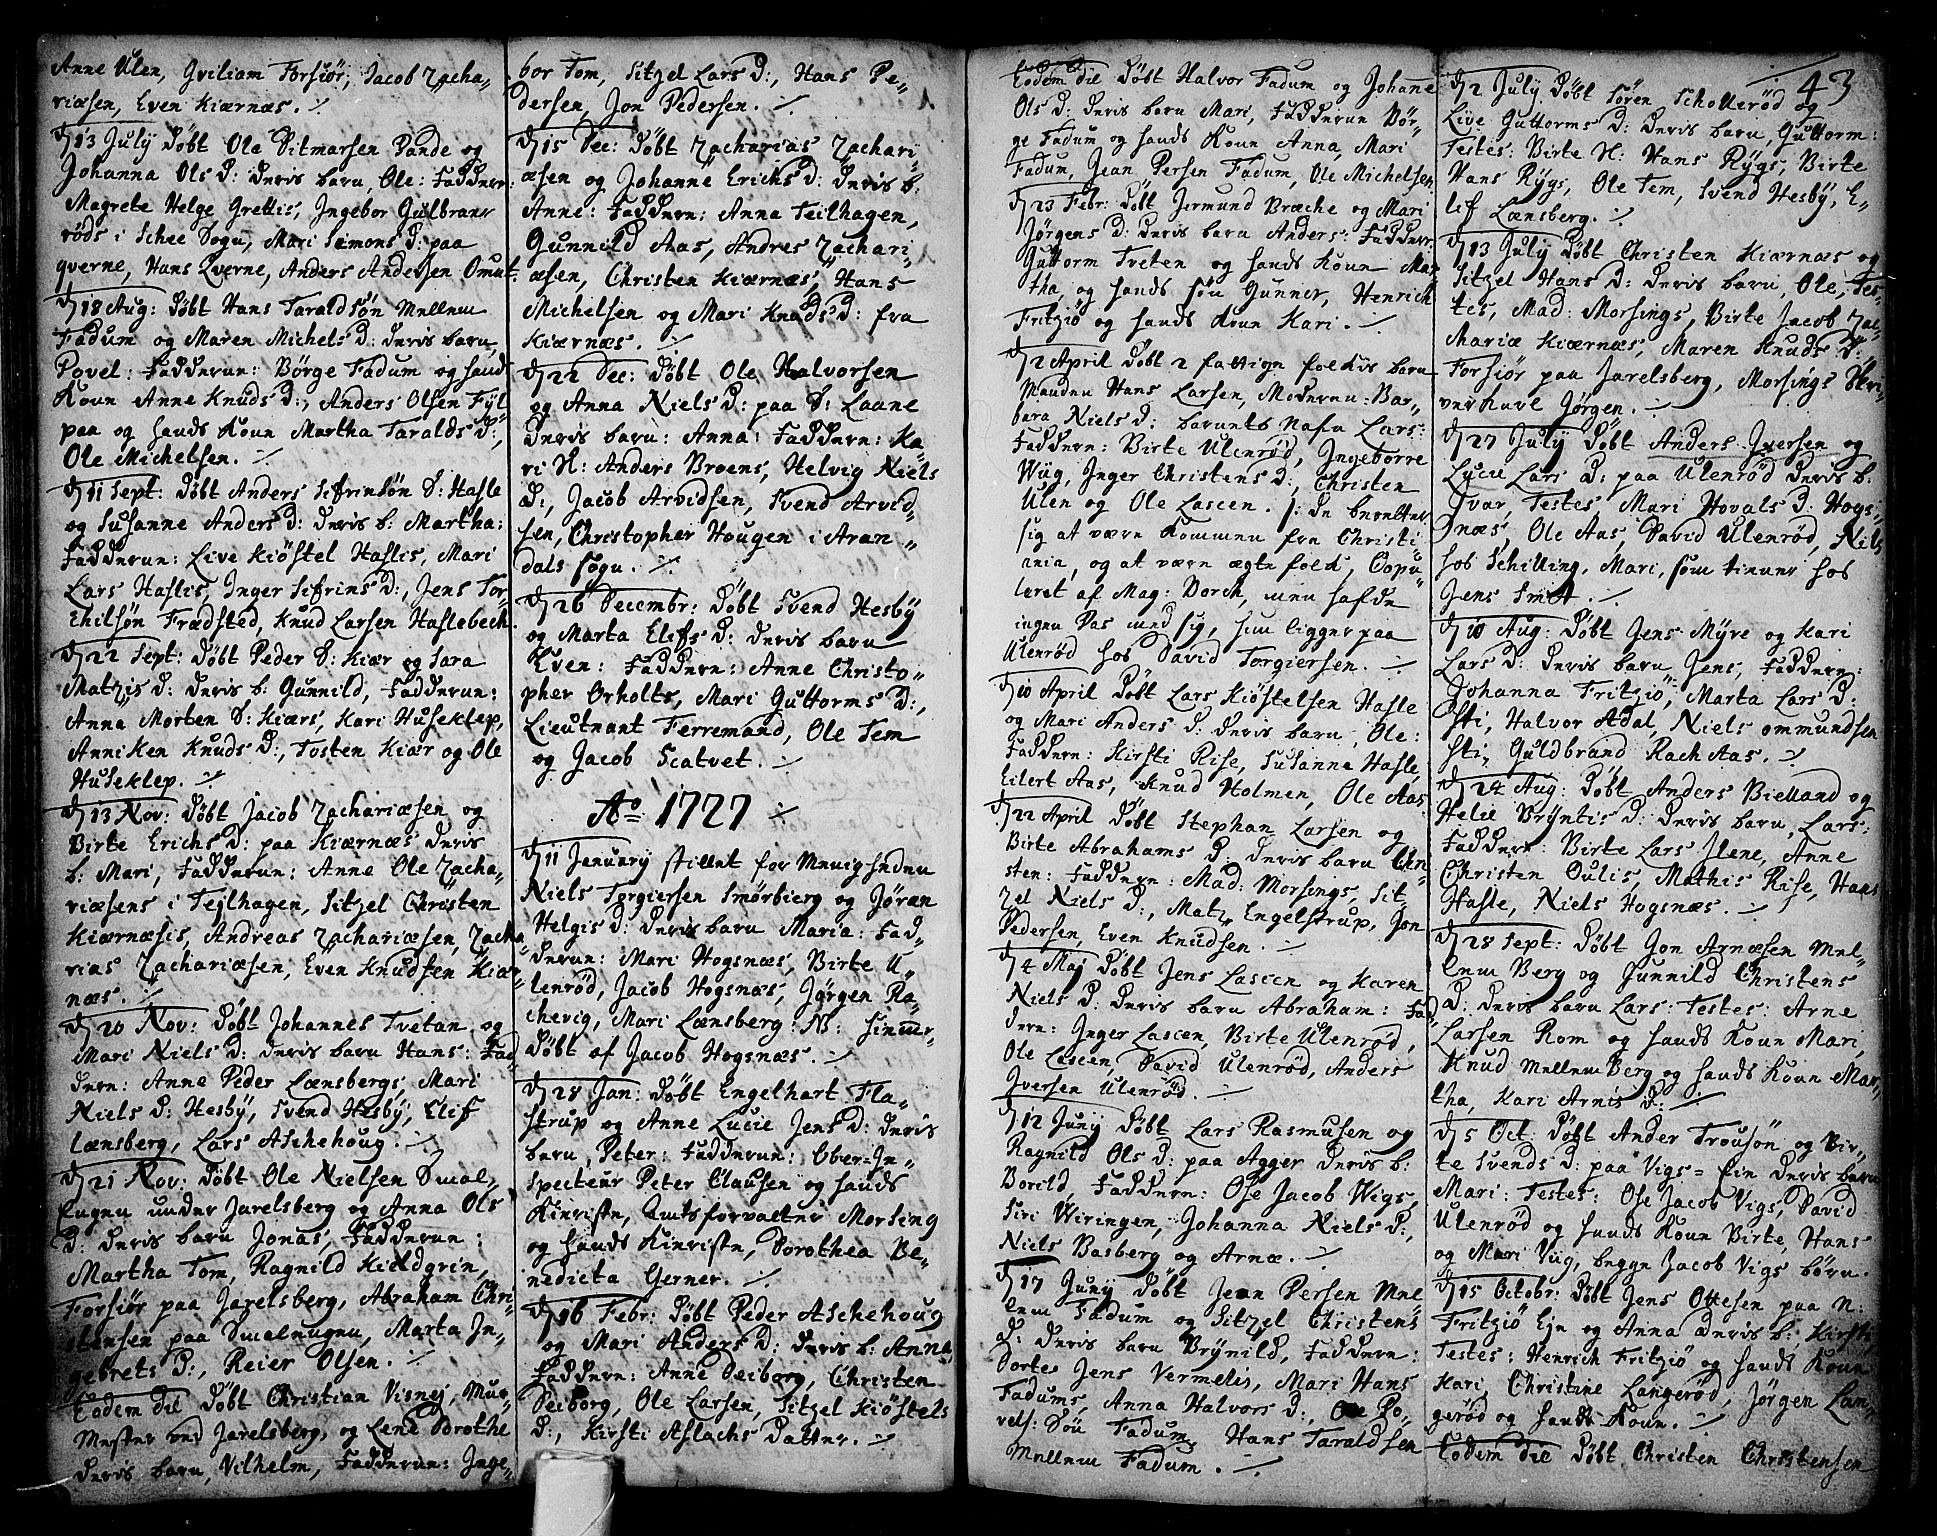 Anne Ulen, Gviliam Forsiør, Jacob Zacha-
riæsen, Even Kiærnæs. ·/·
d 13 July Døbt Ole Ditmarsen Sande og
Johanna Ols D: deris barn, Ole: Faddern:
Magrete Helge Grettis, Ingebor Gulbrans
røds i Schee Sogn, Mari Simons D: paa
qverne, Hans Qverne, Anders Andersen Omut.
d 18 Aug: Døbt Hans Taraldsøn Mellem
Fadum og Maren Michels D: deris barn,
Povel: Fadderne: Børge Fadum og hands
Konn Anne Knuds D:, Anders Olsen Fyl-
paa og hands Konn Martha Taralds D:,
Ole Michelsen. ·/·
d 11 Sept: Døbt Anders Sifrinsøn S: Hasle
og Susanne Anders D: deris b: Martha:
Fadderne: Live Kiøstel Haslis, Mari
Lars Haslis, Inger Sifrins D:, Jens Tor-
chilsøn Frædsted, Knud Larsen Haslebech.
d 22 Sept: Døbt Peder S: Kiær og Sara
Matzis D: deris b: Gunnild, Fadderne:
Anna Morten S: Kiærs, Kari Huseklep,
Anniken Knuds D:, Tosten Kiær og Ole
Huseklep. ·/·
d 13 Nov: Døbt Jacob Zachariæsen og
Birte Erichs D: paa Kiærnæs deris
b: Mari, Fadderne: Anne Ole Zacha-
riæsens i Tejlhagen, Sitzel Christen
Kiærnæsis, Andreas Zachariæsen, Zacha-
rias Zachariæsen, Even Knudsen Kiær-
næs. ·/·
d 20 Nov: Døbt Johannes Tvetan og
Mari Niels D: deris barn Hans: Fad-
dern: Anne Peder Lænsbergs, Mari
Niels D: Hesby, Svend Hesby, Elif
Lænsberg, Lars Aschehoug. ·/·
d 21 Nov: Døbt Ole Nielsen Smal-
Engen under Jarelsberg og Anna Ols
D: deris barn Jonas, Fadderne:
Martha Tom, Ragnild Kieldgrin,
Forsiør paa Jarelsberg, Abraham Chri-
stensen paa Smalnugnu, Marta In-
gebrets D:, Reier Olsen. ·/·
Eodem die Døbt Christian Visnej, Mur-
Mester ved Jarelsberg, og Lene Dorothe
deris barn, Vilhelm, Fadderne: Inge-
bor Tom, Sitzel Lars D:, Hans Pe-
dersen, Jon Pedersen. ·/·
d 15 Dec: Døbt Zacharias Zachari-
æsen og Johanne Erichs D: deris b:
Anne: Faddern: Anna Teilhagen,
Gunnild Aas, Andres Zachari-
æsen, Christen Kiærnæs, Hans
Michelsen og Mari Knuds D: fra
Kiærnæs. ·/·
d 22 Dec: Døbt Ole Halvorsen
og Anna Niels D: paa S: Laane
deris barn: Anna: Faddern: Ka-
ri H: Anders Broens, Helvig Niels
D:, Jacob Arvidsen, Svend Arvid-
sen, Christopher Hougen i Aran-
dals sogn. ·/·
d 26 Decembr: Døbt Svend Hesby
og Marta Elifs D: deris barn
Even: Faddern: Anne Christo-
pher Orholts, Mari Guttorms D:,
Lieutnant Ferremand, Ole Tem
og Jacob Scatvet. ·/·
Ao 1727 ·/·
d 11 January stillet for Menigheden
Niels Torgiersen Smørbierg og Jøran
Helgis D: deris barn Maria: Fad-
derne: Mari Hogsnæs, Birte U-
lenrød, Jacob Hogsnæs, Jørgen Ra-
chevig, Mari Lænsberg: NB: hiemme-
Døbt af Jacob Hogsnæs. ·/·
d 28 Jan: Døbt Engelhart Fla-
strup og Anne Lucie Jens D: deris
barn, Peter: Fadderne: Ober-In-
specteur Peter Clausen og hands
Kieriste, Amtsforvalter Morsing
og hands Kieriste, Dorothea Be-
nedicta Gerner. ·/·
d 16 Febr: Døbt Peder Aschehoug
og Mari Anders D: deris b: Anna
Faddern: Anne Seiborg, Christen
Seiborg, Ole Larsen, Sitzel Kiøstels
D:, Kirsti Aslachs Datter. ·/·
Eodem die Døbt Halvor Fadum og Johanne
Ols D: deris barn Mari, Fadderne Bør-
ge Fadum og hands Konn Anna, Mari
Fadum, Jean Persen Fadum, Ole Michelsen.
d 23 Febr: Døbt Jermund Bræche og Mari
Jørgens D: deris barn Anders: Fadder:
Guttorm Tveten og hands Konn Mar-
tha, og hands søn Gunner, Henrich
Fritziø og hands Konn Kari. ·/·
d 2 April Døbt 2 fattige folkis barn
Manden Hans Larsen, Moderen: Bar-
bara Niels D: barnets nafn Lars:
Faddern: Birte Ulenrød, Ingeborre
Wiig, Inger Christens D:, Christen
Ulen og Ole Lascen. /: de beretter
sig at være kommen fra Christi-
ania, og at være ægte folk, Copu-
leret af Mag: Dorch, men hafde
ingen Pas med sig, hun ligger paa
Ulenrød hos David Torgiersen. ·/·
d 10 April Døbt Lars Kiøstelsen Hasle
og Mari Anders D: deris barn, Ole:
Faddern: Kirsti Rise, Susanne Hasle,
Eilert Aas, Knud Holmen, Ole Aas
d 22 April Døbt Stephan Larsen og
Birte Abrahams D: deris barn Chri-
sten: Faddern: Mad: Morsings, Sit-
zel Niels D:, Matz Engelstrup, Jon
Pedersen, Even Knudsen. ·/·
d 4 Maj Døbt Jens Lascen og Karen
Niels D: deris barn Abraham: Fad-
dern: Inger Lascen, Birte Ulenrød,
Ole Lascen, David Ulenrød, Anders
Iversen Ulenrød. ·/·
d 12 Juny Døbt Lars Rasmusen og
Ragnild Ols D: paa Agger deris b:
Borild, Faddern: Ose Jacob Wigs,
Siri Wiringen, Johanna Niels D:,
Niels Basberg og Arnæ. ·/·
d 17 Juny Døbt Jean Persen Mel-
lem Fadum og Sitzel Christens
D: deris barn Brynild, Faddern:
Dorte Jens Vermelis, Mari Hans
Fadums, Anna Halvors D:, Ole Po-
vels: Søn Fadum, Hans Taraldsen
Mellem Fadum. ·/·
43
d 2 July Døbt Søren Schollerød og
Live Guttorms D: deris barn, Guttorm:
Testes: Birte H: Hans Rygs, Birte
Hans Rygs, Ole Tem, Svend Hesby, E-
lif Lænsberg. ·/·
d 13 July Døbt Christen Kiærnæs og
Sitzel Hans D: deris barn, Ole, Tes-
tes, Mad: Morsings, Birte Jacob Zac-
hariæ Kiærnæs, Maren Knuds D:
Forsiør paa Jarelsberg, Morsings Skri-
verkarl Jørgen. ·/·
d 27 July Døbt Anders Iversen og
Lucie Lars D: paa Ulenrød deris b:
Ivar, Testes, Mari Hovals D: Hogs-
næs, Ole Aas, David Ulenrød, Niels
hos Schilling, Mari, som tiener hos
Jens Smit. ·/·
d 10 Aug: Døbt Jens Myre og Kari
Lars D: deris barn Jens, Faddern:
Johanna Fritziø, Marta Lars D:
Sti, Halvor Adal, Niels ommundsen
Sti, Guldbrand Rach Aas. ·/·
d 24 Aug: Døbt Anders Bielland og
Helie Bryntis D: deris barn, Lars:
Faddern: Birte Lars Ilene, Anne
Christen Oulis, Mathis Rise, Hans
Hasle, Niels Hogsnæs. ·/·
d 28 Sept: Døbt Jon Arnæsen Mel-
lem Berg og Gunnild Christens
D: deris barn Lars: Testes: Arne
Larsen Rom og hands Konn Mari,
Knud Mellem Berg og hands Konn Mar-
tha, Kari Arnis D: ·/·
d 5 Oct. Døbt Ander Trousøn og Bir-
te Svends D: paa Vigs-Ein deris barn
Mari: Testes: Ose Jacob Vigs, David
Ulenrød og hands Konn Birte, Hans
og Mari Viig, begge Jacob Vigs børn.
d 15 Octobr: Døbt Jens Ottesen paa N:
Fritziø Eje og Anna deris b: Kirsti,
Testes: Henrich Fritziø og hands Konn
Kari, Christine Langerød, Jørgen Lan-
gerød og hands Konn. ·/·
Eodem die Døbt Christen Christensen